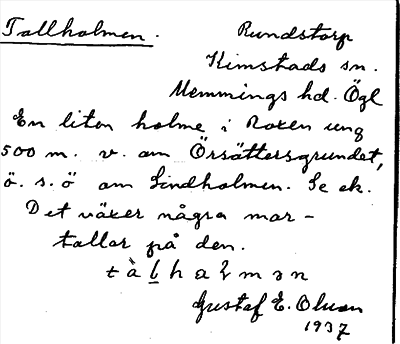 Tallholmen. Rundstorp
Kimstads sn.
Memmings hd. Ögl
En liten holme i Roxen ung
500 m. v. om Örsättersgrundet,
ö. s. ö om Lindholmen. Se ek.
Det växer några mar-
tallar på den.
Gustaf E. Olson
1937